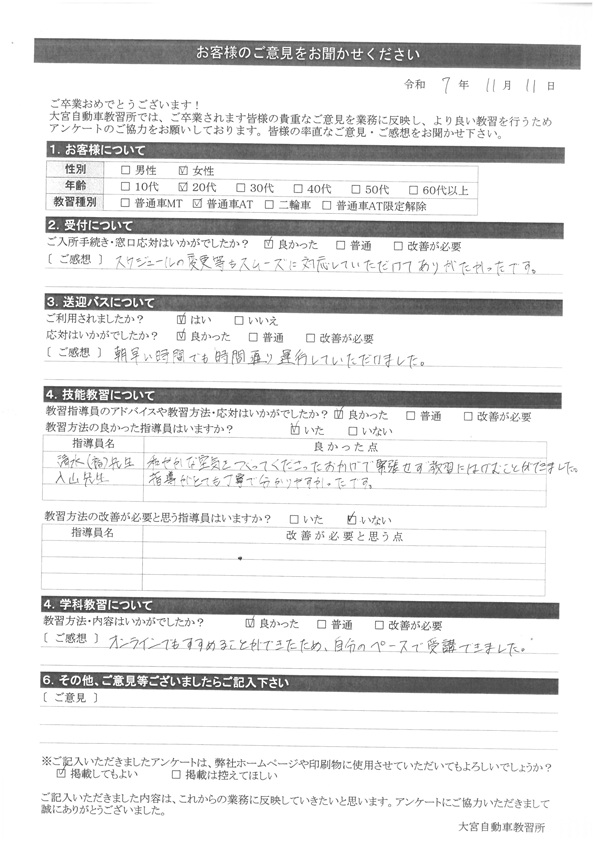 お客様のご意見をお聞かせください
令和 7 年 11 月 11 日
ご卒業おめでとうございます！
大宮自動車教習所では、ご卒業されます皆様の貴重なご意見を業務に反映し、より良い教習を行うため
アンケートのご協力をお願いしております。皆様の率直なご意見・ご感想をお聞かせ下さい。
1. お客様について
性別 □ 男性 ☑ 女性
年齢 □ 10代 ☑ 20代 □ 30代 □ 40代 □ 50代 □ 60代以上
教習種別 □ 普通車MT ☑ 普通車AT □ 二輪車 □ 普通車AT限定解除
2. 受付について
ご入所手続き・窓口応対はいかがでしたか？ ☑ 良かった □ 普通 □ 改善が必要
[ ご感想 ] スケジュールの変更等もスムーズに対応していただけてありがたかったです。
3. 送迎バスについて
ご利用されましたか？ ☑ はい □ いいえ
応対はいかがでしたか？ ☑ 良かった □ 普通 □ 改善が必要
[ ご感想 ] 朝早い時間でも時間通り運行していただけました。
4. 技能教習について
教習指導員のアドバイスや教習方法・応対はいかがでしたか？ ☑ 良かった □ 普通 □ 改善が必要
教習方法の良かった指導員はいますか？ ☑ いた □ いない
指導員名 良かった点
清水( )先生 和やかな空気をつくってくださったおかげで緊張せず教習にはげむことができました。
入山先生 指導がとても丁寧で分かりやすかったです。
教習方法の改善が必要と思う指導員はいますか？ □ いた ☑ いない
指導員名 改善が必要と思う点
4. 学科教習について
教習方法・内容はいかがでしたか？ ☑ 良かった □ 普通 □ 改善が必要
[ ご感想 ] オンラインでもすすめることができたため、自分のペースで受講できました。
6. その他、ご意見等ございましたらご記入下さい
[ ご意見 ]
※ご記入いただきましたアンケートは、弊社ホームページや印刷物に使用させていただいてもよろしいでしょうか？
☑ 掲載してもよい □ 掲載は控えてほしい
ご記入いただきました内容は、これからの業務に反映していきたいと思います。アンケートにご協力いただきまして
誠にありがとうございました。
大宮自動車教習所